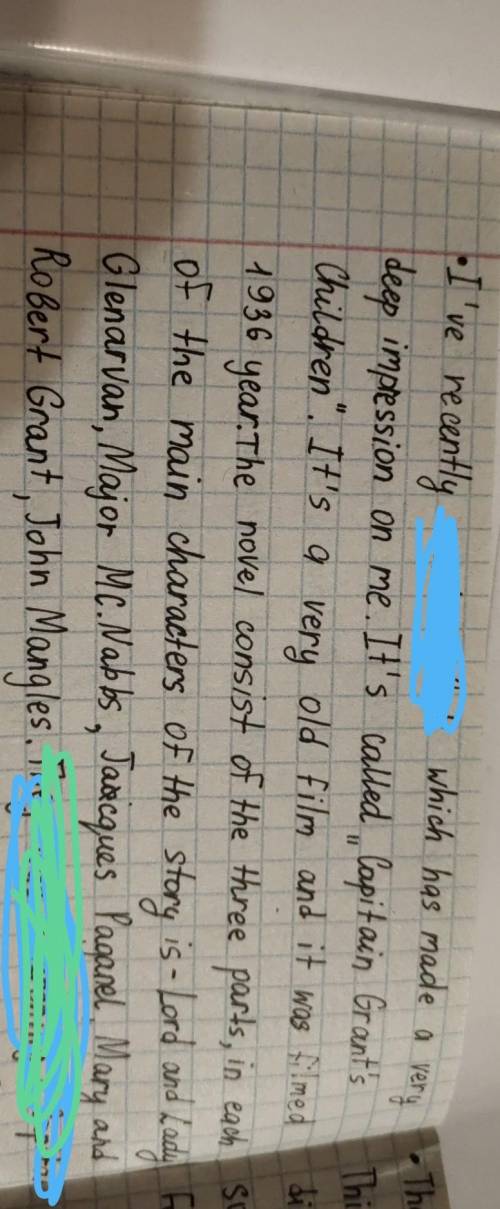 • I've recently which has made a very
deep impression on me. It's called „Capitain Grant's
Children". It's a very old film and it was filmed
1936 year. The novel consist of the three parts, in each
of the main characters of the story is - Lord and Lady
Glenarvan, Major Mc. Nabbs, Paganel, Mary and
Robert Grant, John Mangles.
• Th
Thi
di
su